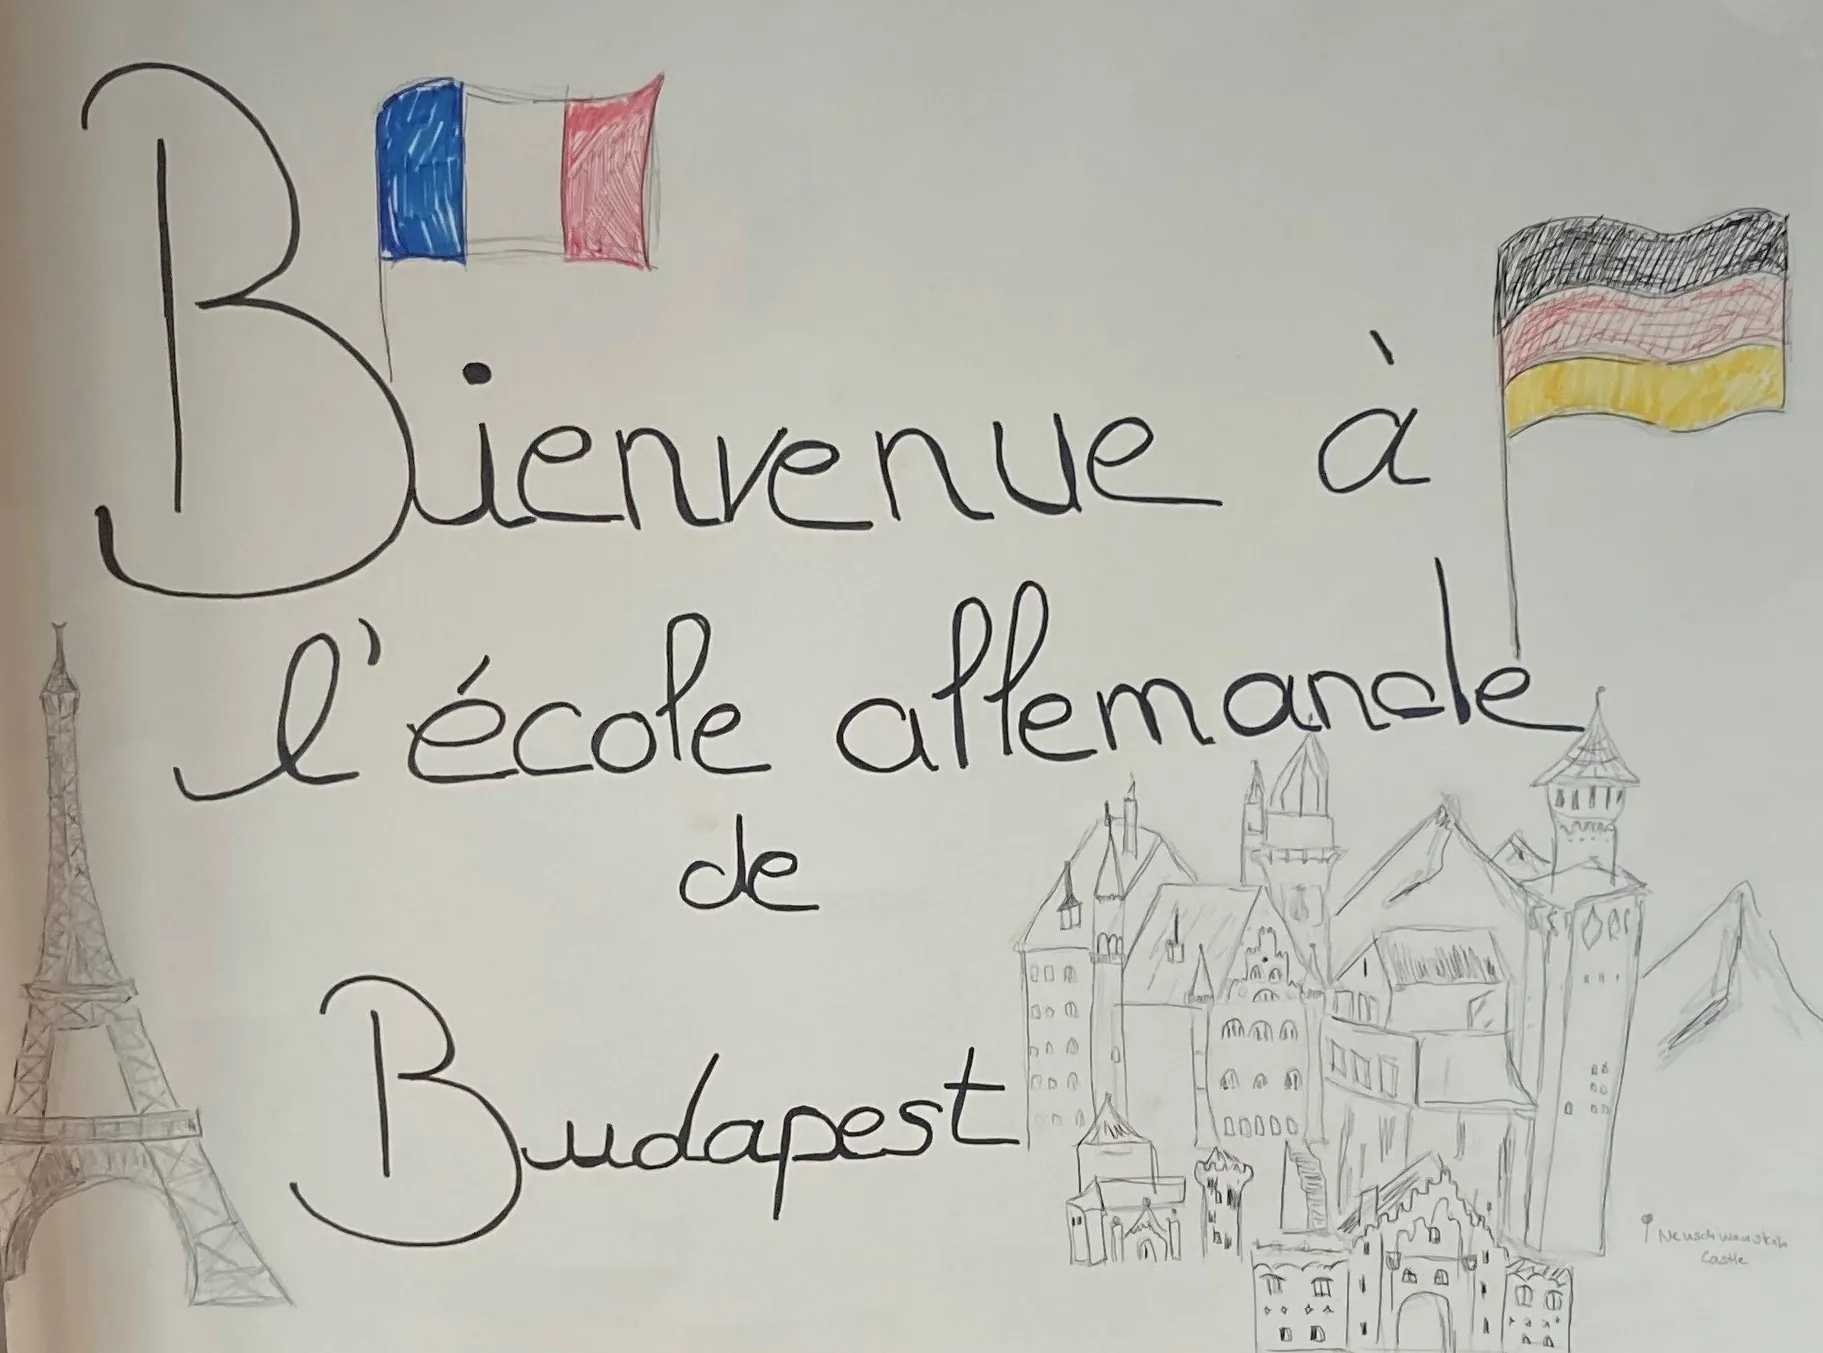 Bienvenue à
l'école allemande
de
Budapest
Castle